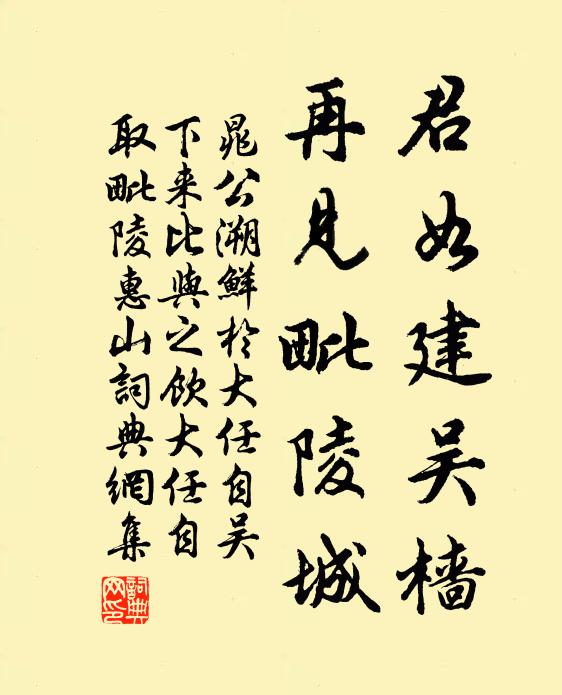 君如建吴檣
再見毗陵城
晁公溯鮮於大任自吴
下来比與之飲大任自
取毗陵惠山詞典網集
詞典网印